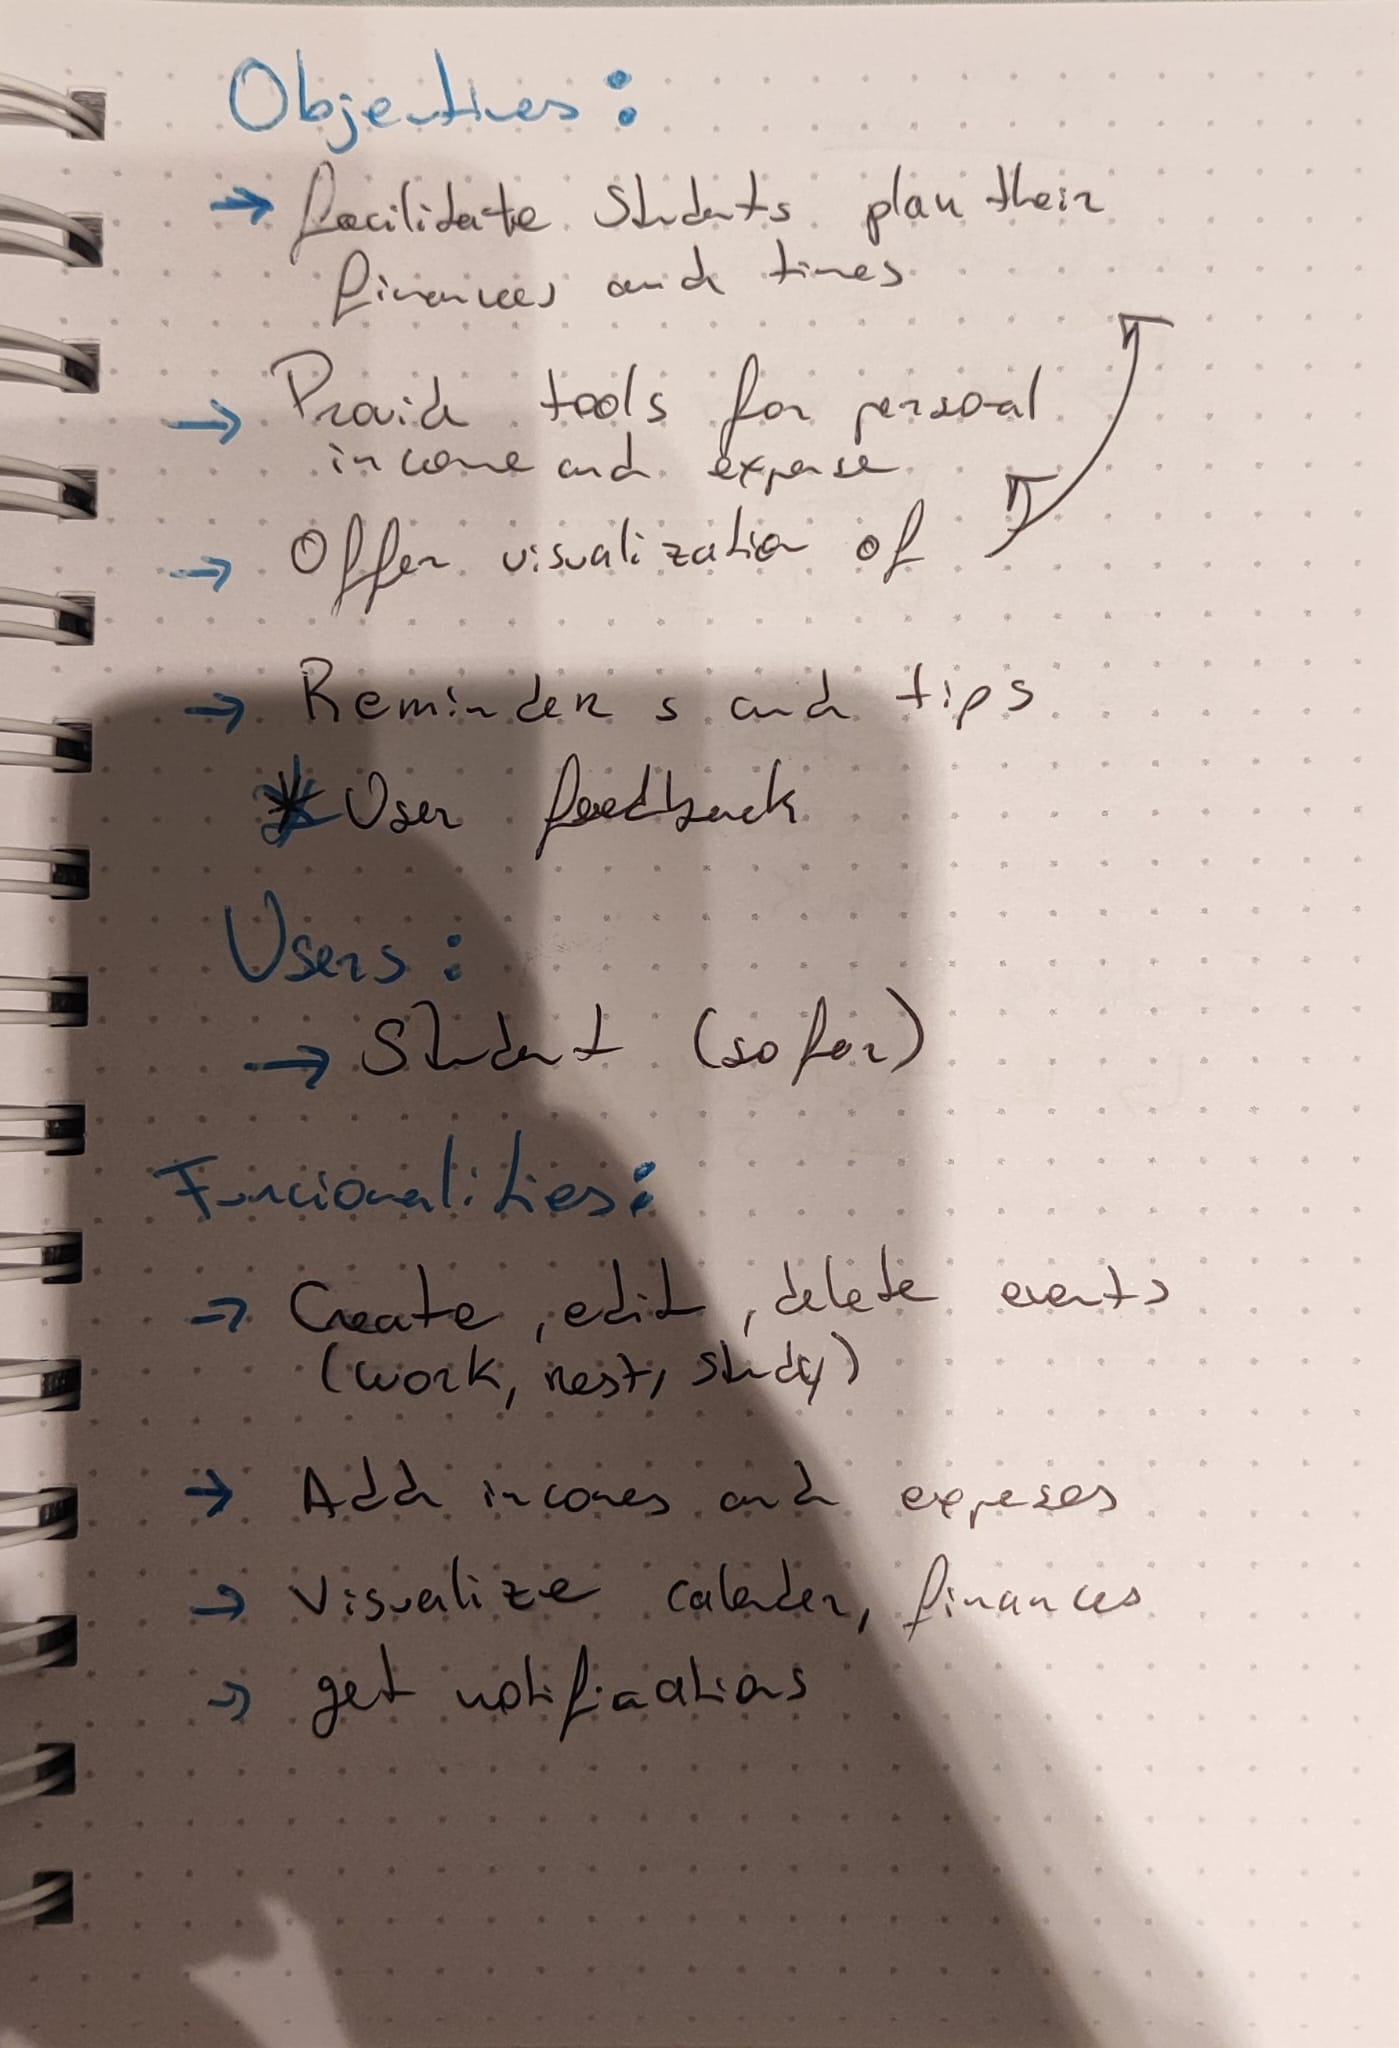 Objectives:
→ facilitate Students plan their
finances and times
→ Provid tools for personal
income and expense
→ Offer visualization of
→ Reminder s and tips
* User feedback
Users:
→ Student (so far)
Funcionalities:
→ Create, edit, delete events
(work, rest, study)
→ Add incomes and expeses
→ Visualize calender, finances
→ get notifications